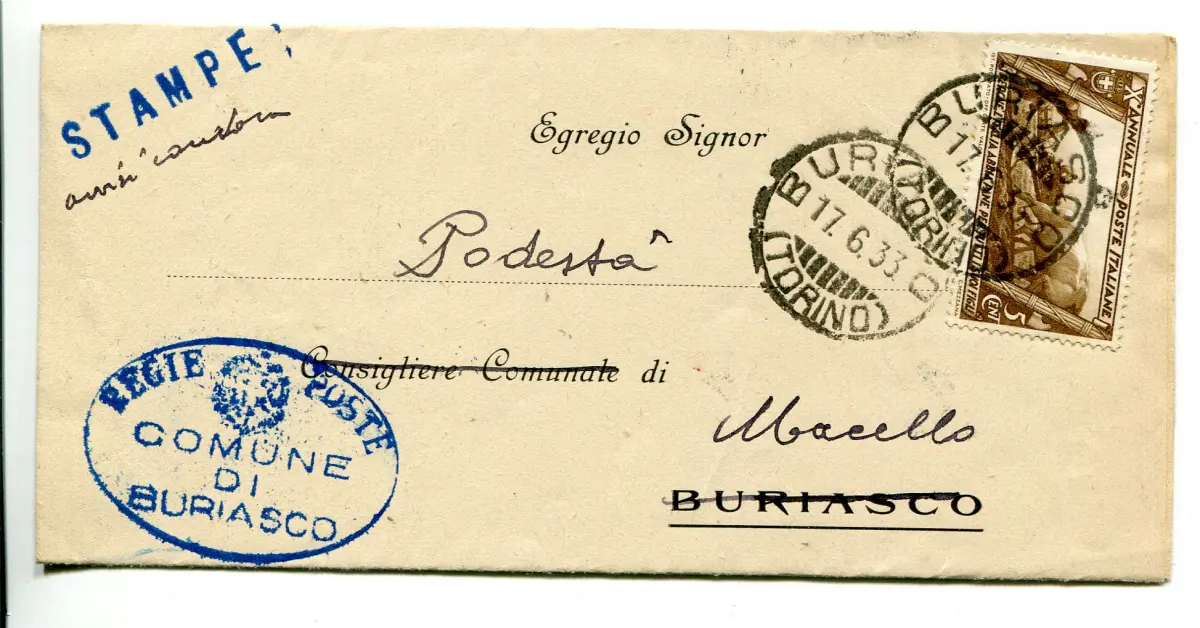 STAMPE;
Egregio Signor
Podestà
Consigliere Comunale di
Macello
BURIASCO
REGIE POSTE
COMUNE
DI
BURIASCO
BURIASCO
17.6.33
(TORINO)
BURIASCO
17.
33
(TORINO)
X ANNUALE POSTE ITALIANE
5 CENT